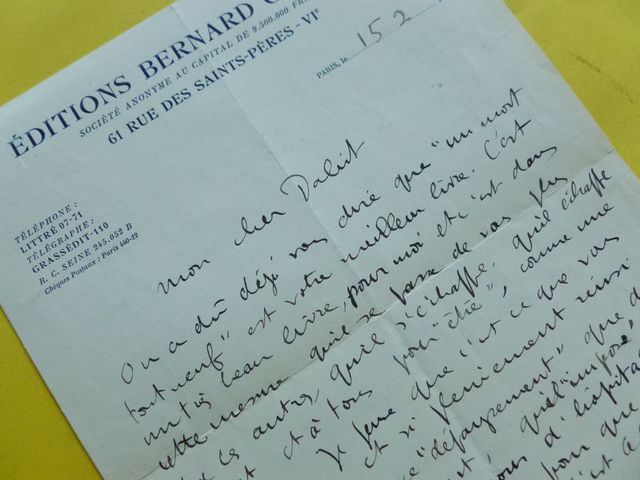 ÉDITIONS BERNARD G
SOCIÉTÉ ANONYME AU CAPITAL DE 9.500.000 FR
61 RUE DES SAINTS-PÈRES - VIᵉ
PARIS, le 15 2
TÉLÉPHONE :
LITTRÉ 07-71
TÉLÉGRAPHE :
GRASSÉDIT-110
R. C. SEINE 245.052 B
Chèques Postaux : Paris 440-22
mon cher
On a dû déjà vous dire que "un mort
tout neuf" est votre meilleur livre. C'est
un très beau livre, pour moi et c'est dans
cette mesure qu'il se passe de vos plus
les autres, qu'il s'échappe, qu'il échappe
et à tous pour "être", comme une
Je pense que c'est ce que vous
et si pleinement réussi
"dépaysement" que d
qu'il impose,
d'hôpital
pour que